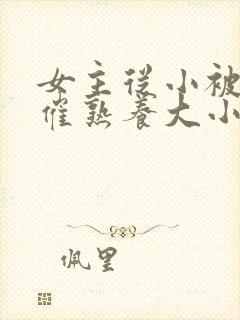 女主从小被
催熟养大小
佩里